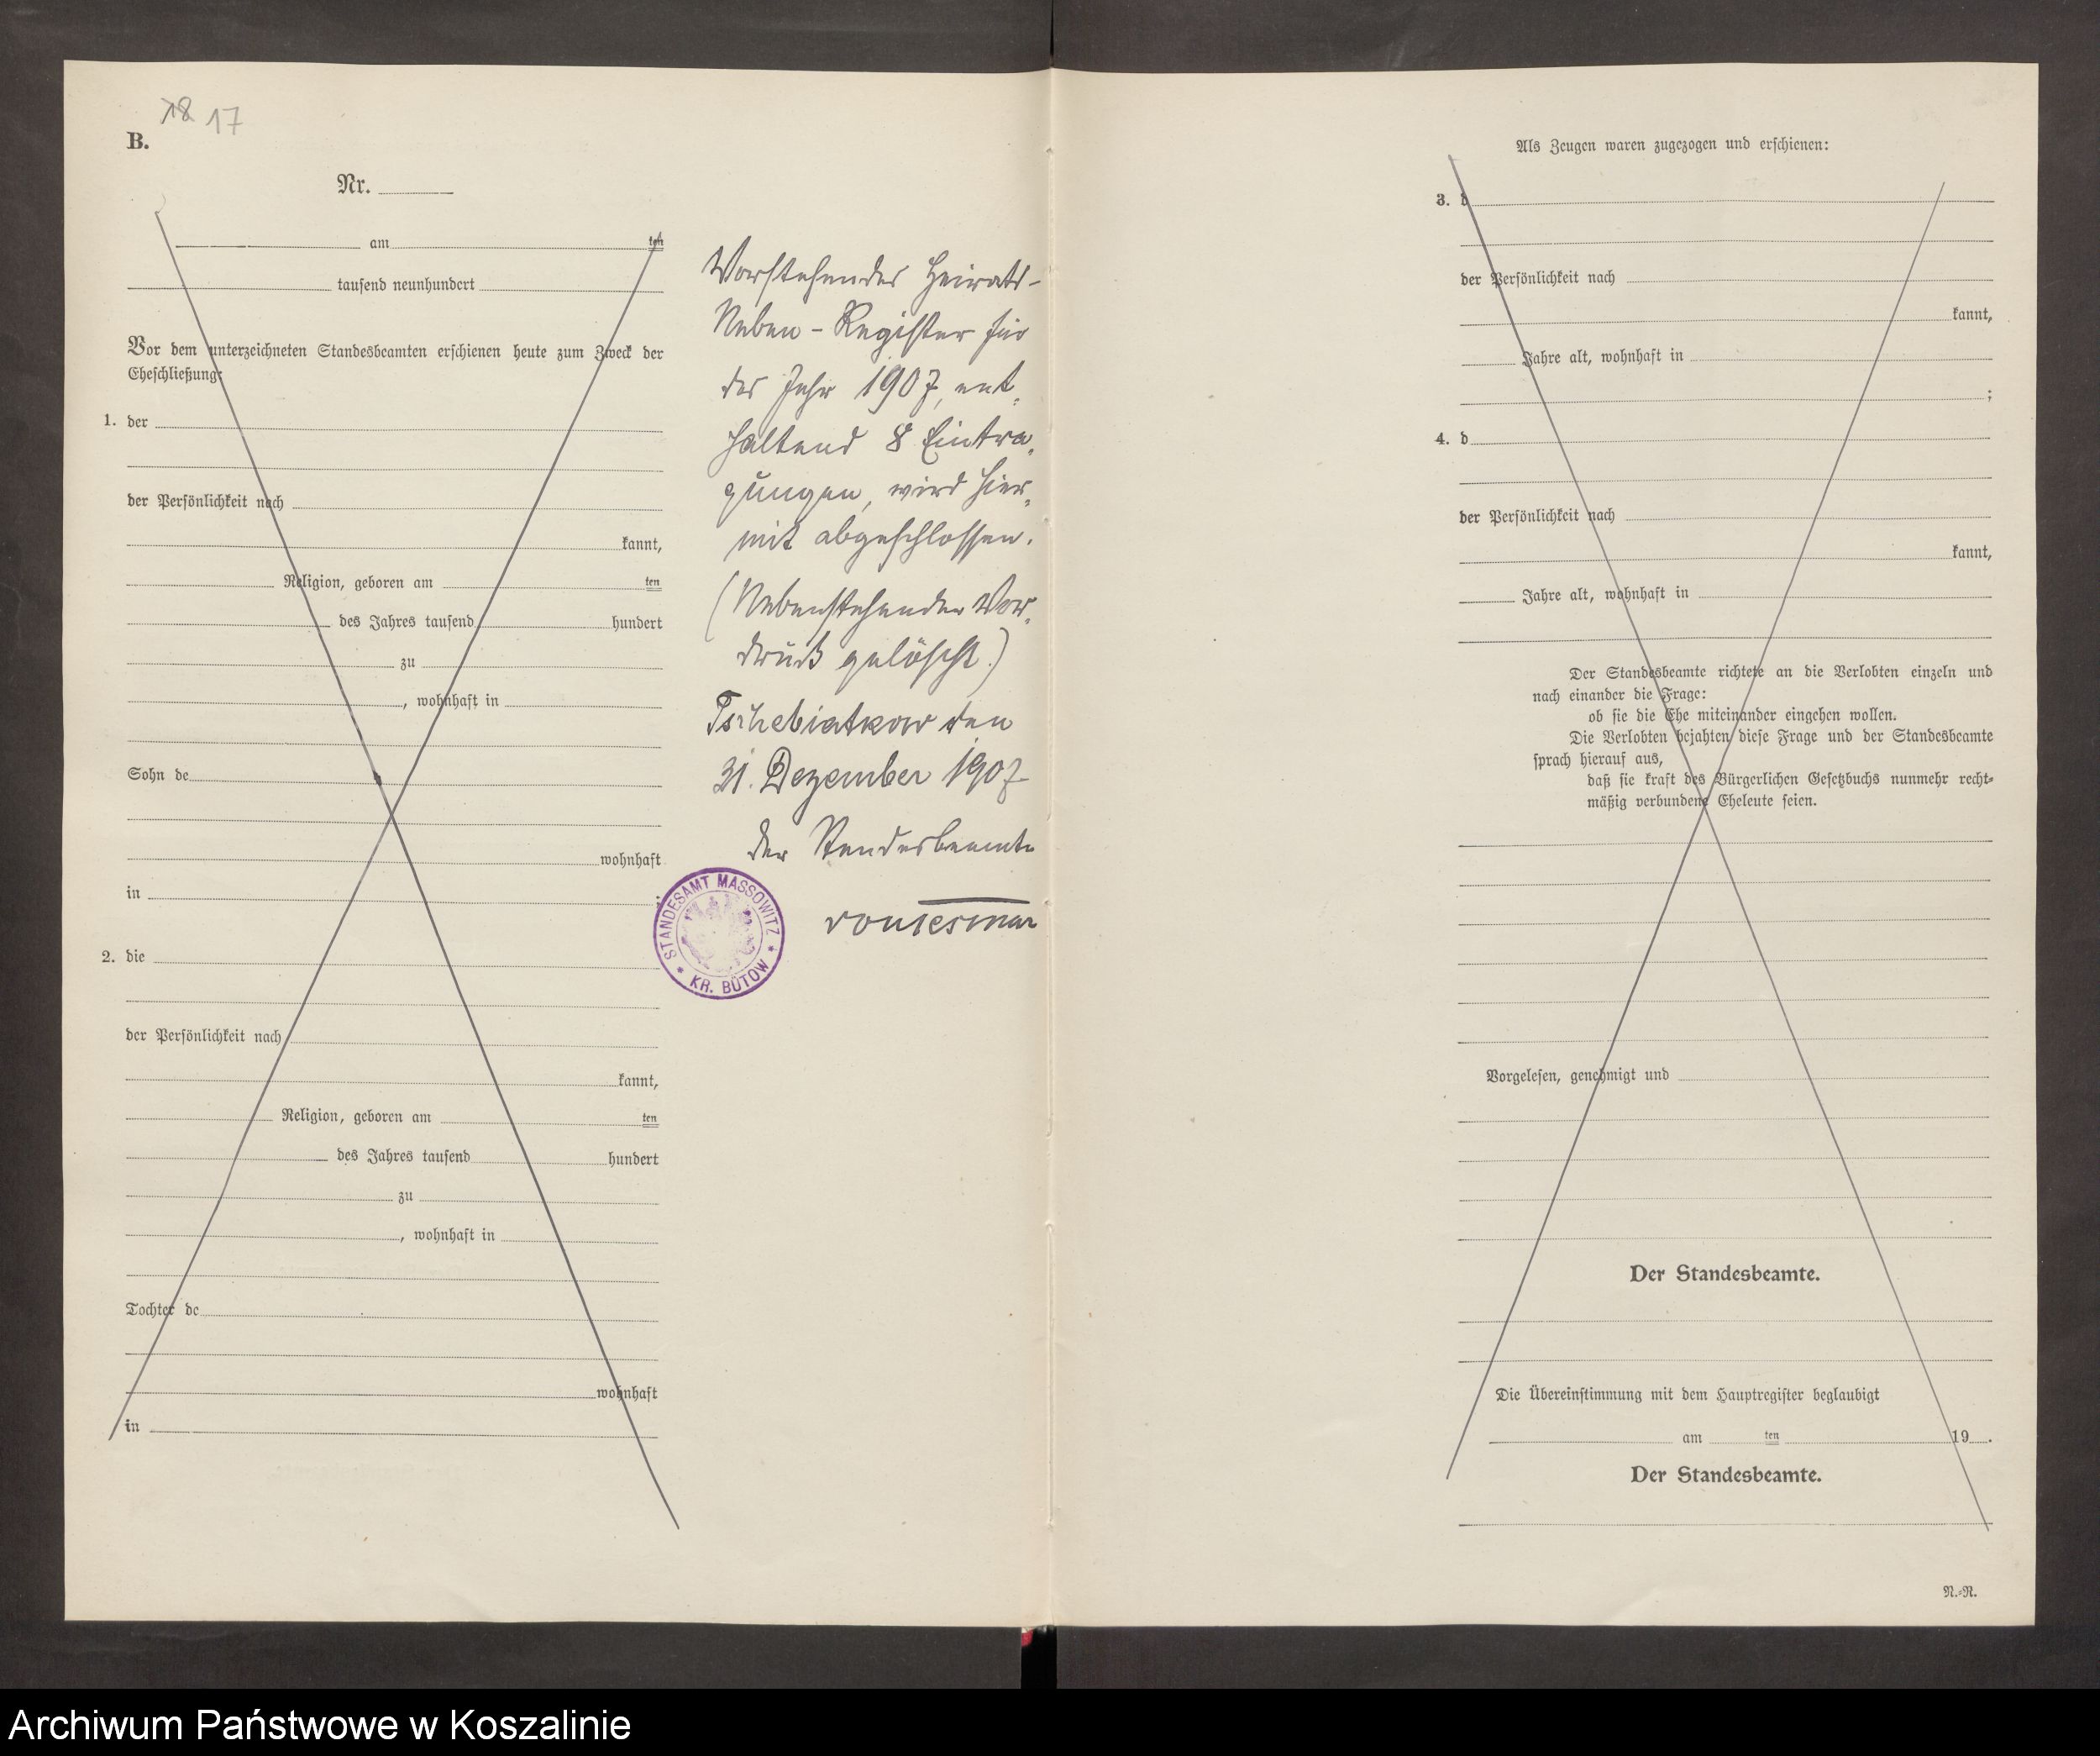 18 17
B.
Nr.
am ten
tausend neunhundert
Vor dem unterzeichneten Standesbeamten erschienen heute zum Zweck der
Eheschließung:
1. der
der Persönlichkeit nach
kannt,
Religion, geboren am ten
des Jahres tausend hundert
zu
, wohnhaft in
Sohn de
wohnhaft
in ;
2. die
der Persönlichkeit nach
kannt,
Religion, geboren am ten
des Jahres tausend hundert
zu
, wohnhaft in
Tochter de
wohnhaft
in
Vorstehendes Heirats-
Neben-Register für
das Jahr 1907, ent-
haltend 8 Eintra-
gungen, wird hier-
mit abgeschlossen.
(Nebenstehender Vor-
druck gelöscht.)
Tschebiatkow den
31. Dezember 1907
Der Standesbeamte
STANDESAMT MASSOWITZ
* KR. BÜTOW *
Als Zeugen waren zugezogen und erschienen:
3. d
der Persönlichkeit nach
kannt,
Jahre alt, wohnhaft in
;
4. d
der Persönlichkeit nach
kannt,
Jahre alt, wohnhaft in
Der Standesbeamte richtete an die Verlobten einzeln und
nach einander die Frage:
ob sie die Ehe miteinander eingehen wollen.
Die Verlobten bejahten diese Frage und der Standesbeamte
sprach hierauf aus,
daß sie kraft des Bürgerlichen Gesetzbuchs nunmehr recht-
mäßig verbundene Eheleute seien.
Vorgelesen, genehmigt und
Der Standesbeamte.
Die Übereinstimmung mit dem Hauptregister beglaubigt
am ten 19 .
Der Standesbeamte.
N.-R.
Archiwum Państwowe w Koszalinie